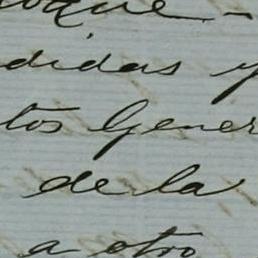 oque -
didas y
tos Gener
de la
a otro